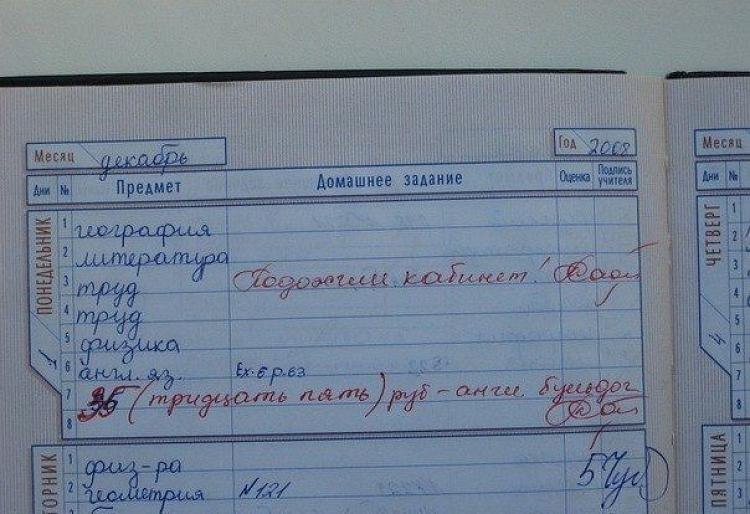 Месяц декабрь Год 2008
Дни № Предмет Домашнее задание Оценка Подпись учителя
ПОНЕДЕЛЬНИК 1
1 география
2 литература
3 труд Подожгли кабинет!
4 труд
5 физика
6 англ. яз. Ex. 6 p. 63
7 35 (тридцать пять) руб - англ. бульдог
8
ТОРНИК
1 физ-ра
2 геометрия №121 5
Месяц
Дни №
ЧЕТВЕРГ 4
1
2
3
4
5
6
7
8
ПЯТНИЦА
1
2
3